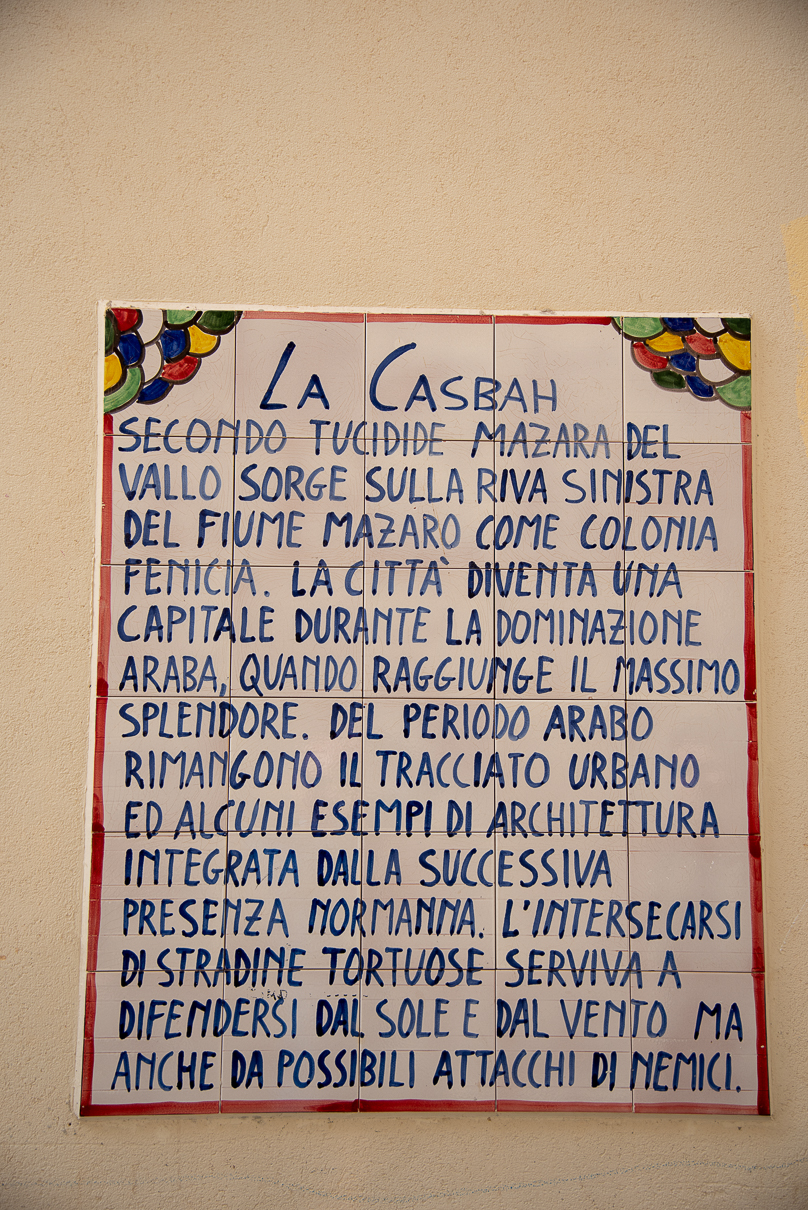 LA CASBAH
SECONDO TUCIDIDE MAZARA DEL
VALLO SORGE SULLA RIVA SINISTRA
DEL FIUME MAZARO COME COLONIA
FENICIA. LA CITTÀ DIVENTA UNA
CAPITALE DURANTE LA DOMINAZIONE
ARABA, QUANDO RAGGIUNGE IL MASSIMO
SPLENDORE. DEL PERIODO ARABO
RIMANGONO IL TRACCIATO URBANO
ED ALCUNI ESEMPI DI ARCHITETTURA
INTEGRATA DALLA SUCCESSIVA
PRESENZA NORMANNA. L'INTERSECARSI
DI STRADINE TORTUOSE SERVIVA A
DIFENDERSI DAL SOLE E DAL VENTO MA
ANCHE DA POSSIBILI ATTACCHI DI NEMICI.